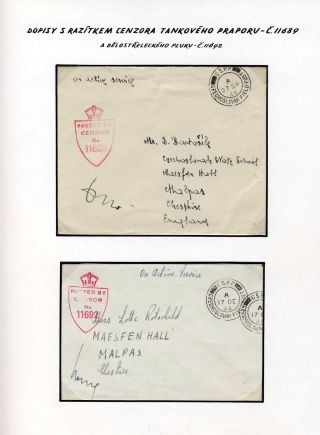 DOPISY S RAZÍTKEM CENZORA TANKOVÉHO PRAPORU-Č.11689
A DĚLOSTŘELECKÉHO PLUKU-Č.11692
on active service
PASSED BY
CENSOR
No
11689
A
44
Mr. D. Bartošík
Czechoslovak State School
Maesfen Hall
Malpas
Cheshire
England
On Active Service
PASSED BY
CENSOR
No
11692
A
17 OC
44
A
17 OC
Miss Lotte
MAESFEN HALL
MALPAS
Cheshire